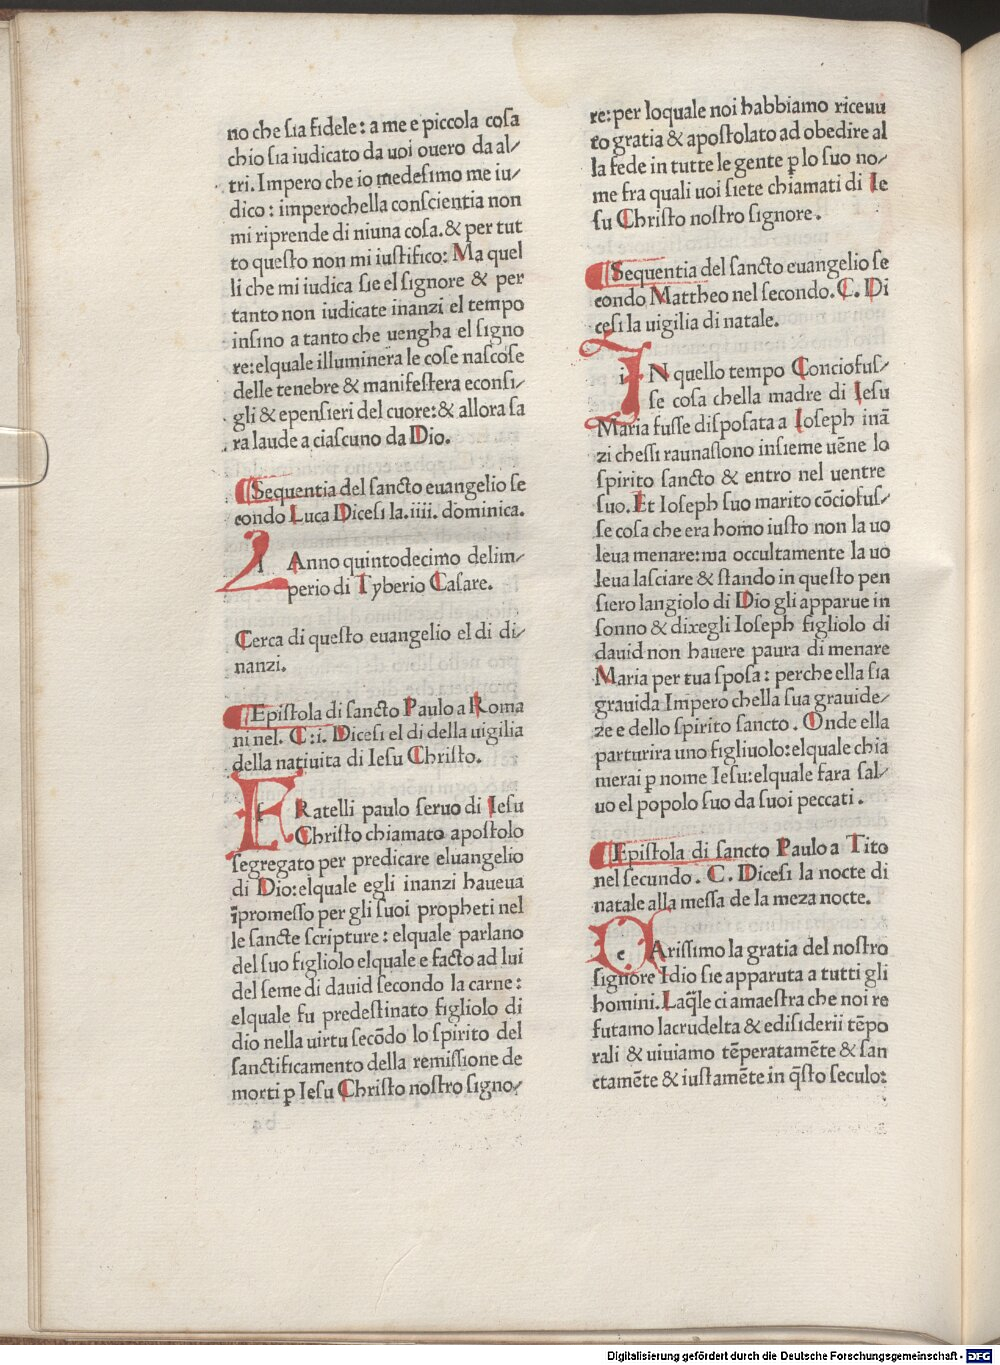 no che ſia fidele: a me e piccola coſa
chio ſia iudicato da uoi ouero da al/
tri. Impero che io medeſimo me iu/
dico: imperochella conſcientia non
mi riprende di niuna coſa. & per tut
to queſto non mi iuſtifico: Ma quel
li che mi iudica ſie el ſignore & per
tanto non iudicate inanzi el tempo
inſino a tanto che uengha el ſigno
re: elquale illuminera le coſe naſcoſe
delle tenebre & manifeſtera econſi/
gli & epenſieri del cuore: & allora ſa
ra laude a ciaſcuno da Dio.
Sequentia del ſancto euangelio ſe
condo Luca Diceſi la. iiii. dominica.
l Anno quintodecimo delim/
perio di Tyberio Caſare.
Cerca di queſto euangelio el di di/
nanzi.
Epiſtola di ſancto Paulo a Roma
ni nel. C: i. Diceſi el di della uigilia
della natiuita di Ieſu Chriſto.
f Ratelli paulo ſeruo di Ieſu
Chriſto chiamato apoſtolo
ſegregato per predicare eluangelio
di Dio: elquale egli inanzi haueua
īpromeſſo per gli ſuoi propheti nel
le ſancte ſcripture: elquale parlano
del ſuo figliolo elquale e facto ad lui
del ſeme di dauid ſecondo la carne:
elquale fu predeſtinato figliolo di
dio nella uirtu ſecōdo lo ſpirito del
ſanctificamento della remiſſione de
morti ꝑ Ieſu Chriſto noſtro ſigno/
re: per loquale noi habbiamo riceuu
to gratia & apoſtolato ad obedire al
la fede in tutte le gente ꝑ lo ſuo no/
me fra quali uoi ſiete chiamati di Ie
ſu Chriſto noſtro ſignore.
Sequentia del ſancto euangelio ſe
condo Mattheo nel ſecondo. C. Di
ceſi la uigilia di natale.
i N quello tempo Conciofuſ/
ſe coſa chella madre di Ieſu
Maria fuſſe diſpoſata a Ioſeph inā
zi cheſſi raunaſſono inſieme uēne lo
ſpirito ſancto & entro nel uentre
ſuo. Et Ioſeph ſuo marito cōciofuſ/
ſe coſa che era homo iuſto non la uo
leua menare: ma occultamente la uo
leua laſciare & ſtando in queſto pen
ſiero langiolo di Dio gli apparue in
ſonno & dixegli Ioſeph figliolo di
dauid non hauere paura di menare
Maria per tua ſpoſa: perche ella ſia
grauida Impero chella ſua grauide/
ze e dello ſpirito ſancto. Onde ella
parturira uno figliuolo: elquale chia
merai ꝑ nome Ieſu: elquale fara ſal/
uo el popolo ſuo da ſuoi peccati.
Epiſtola di ſancto Paulo a Tito
nel ſecundo. C. Diceſi la nocte di
natale alla meſſa de la meza nocte.
c Ariſſimo la gratia del noſtro
ſignore Idio ſie apparuta a tutti gli
homini. Laq̄le ci amaeſtra che noi re
futamo lacrudelta & ediſiderii tēpo
rali & uiuiamo tēperatamēte & ſan
ctamēte & iuſtamēte in q̄ſto ſeculo:
Digitalisierung gefördert durch die Deutsche Forschungsgemeinschaft - DFG